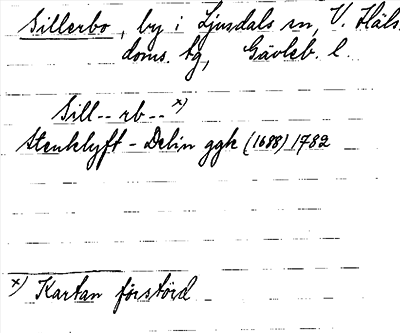 Sillerbo, by i Ljusdals sn, V. Häls.
doms. tg, Gävleb. l.
Sill-- rb-- x)
Stenklyft - Delin ggk (1688) 1782
x) Kartan förstörd